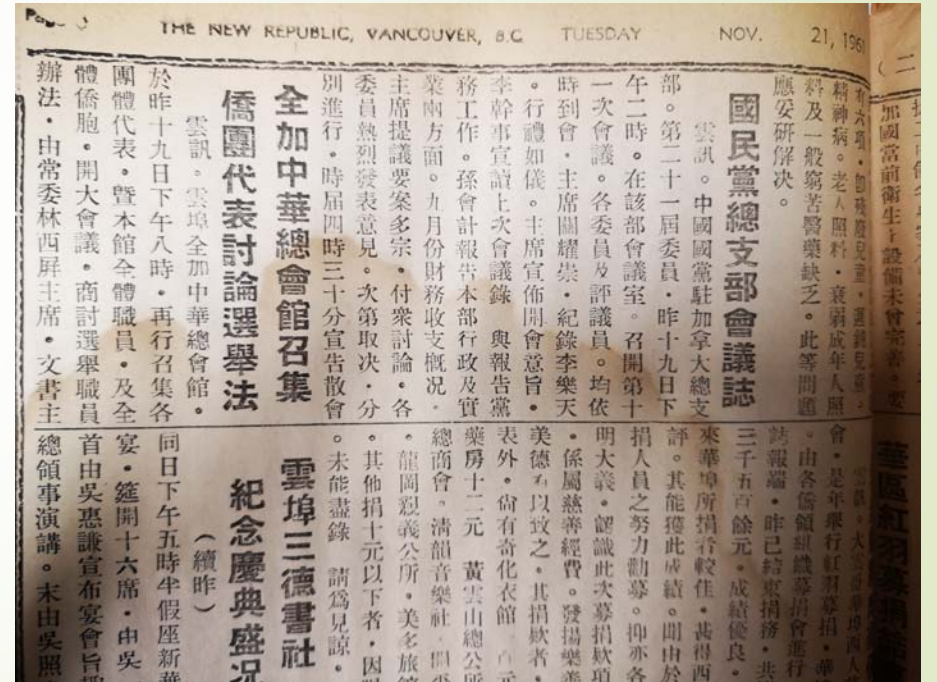 THE NEW REPUBLIC, VANCOUVER, B.C. TUESDAY NOV. 21, 1961
加國當前衛生設備未曾完善。要
有六項。即殘廢兒童。遲鈍兒童。
精神病。老人照料。衰弱成年人照
料及一般窮苦醫藥缺乏。此等問題
應安研解决。
國民黨總支部會議誌
雲訊。中國國黨駐加拿大總支
部。第二十一屆委員。昨十九日下
午二時。在該部會議室。召開第十
一次會議。各委員及評議員。均依
時到會。主席關耀崇。紀錄李樂天
。行禮如儀。主席宣佈開會意旨。
李幹事宣讀上次會議錄 與報告黨
務工作。孫會計報告本部行政及實
業兩方面。九月份財務收支概况。
主席提議要案多宗。付衆討論。各
委員熱烈發表意見。次第取决。分
別進行。時屆四時三十分宣告散會
全加中華總會館召集
僑團代表討論選舉法
雲訊。雲埠全加中華總會館。
於昨十九日下午八時。再行召集各
團體代表。暨本館全體職員。及全
體僑胞。開大會議。商討選舉職員
辦法。由常委林西屏主席。文書主
華區紅羽募捐
會。是年舉行紅羽募捐。華
。由各僑領組織募捐會進行
誌報端。昨已結束捐務。共
三千五百餘元。成績優良。
來華埠所捐者較佳。甚得西
評。其能獲此成績。聞由於
捐人員之努力勸募。抑亦各
明大義。認識此次募捐欵項
。係屬慈善經費。發揚樂善
美德有以致之。其捐欵者。
表外。尚有奇化衣館 百元
藥房十二元 黃雲山總公所
總商會。清韻音樂社
。龍岡親義公所。美多旅館
。其他捐十元以下者。因
。未能盡錄 請爲見諒。
雲埠三德書社
紀念慶典盛况
（續昨）
同日下午五時半假座新華
宴。筵開十六席。由吳
首由吳惠謙宣布宴會旨趣
總領事演講。末由吳照